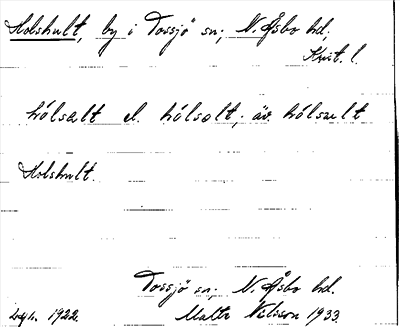 Holshult, by i Tossjö sn; N. Åsbo hd,
Krist. l.
hólsalt el. hólsolt; äv. hólsult
Holshult.
Tossjö sn; N. Åsbo hd.
1922. Malte Nilsson 1933.